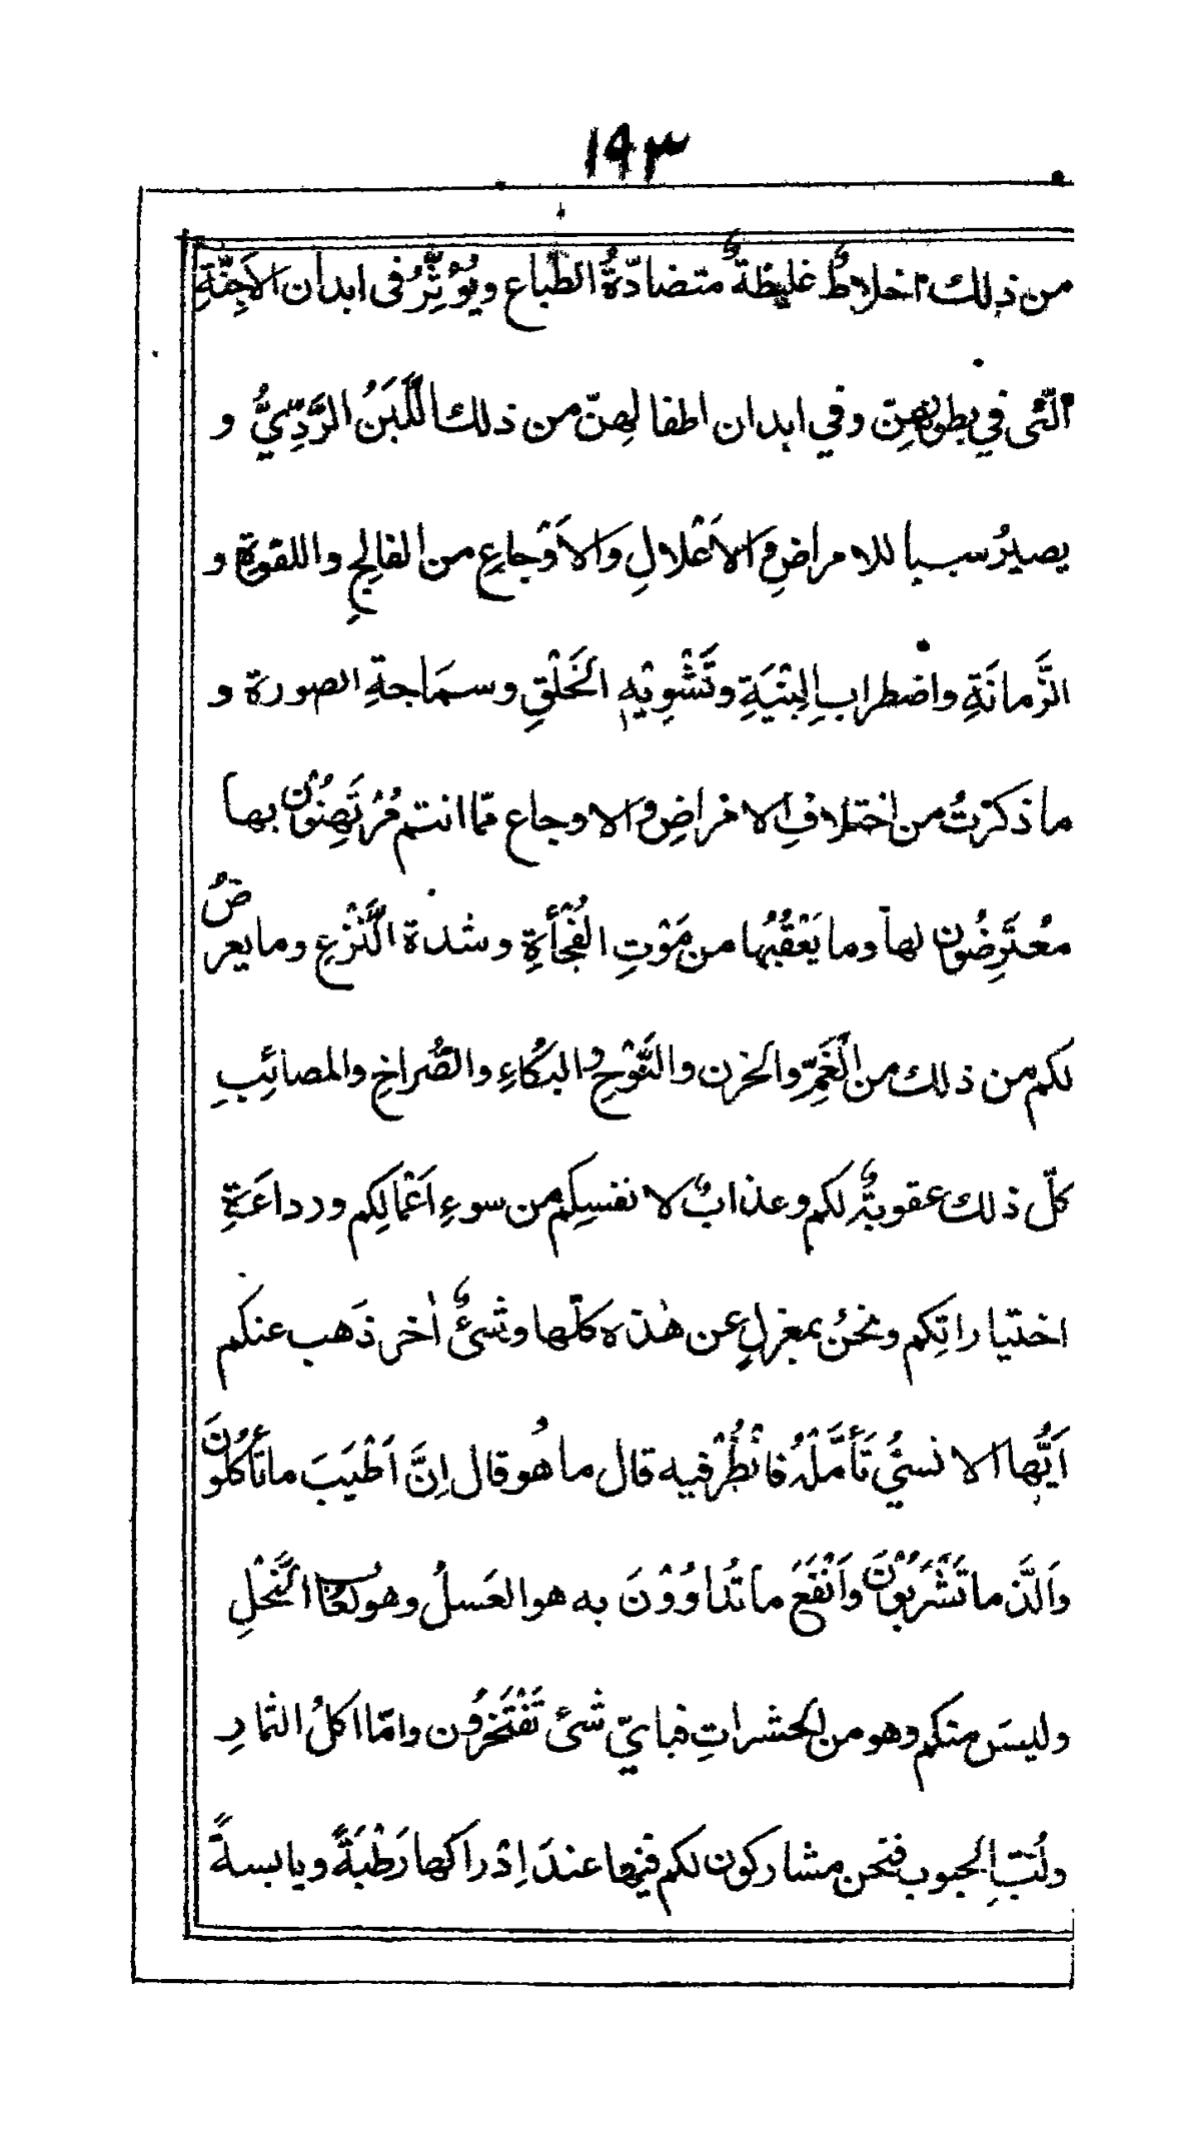 ١٩٣
من ذلك اخلاطٌ غليظةٌ متضادّةُ الطّباع ويُؤَثِّرُ فى ابدان الاَجِنَّةِ
الّتى في بطونهِنّ وفي ابدان اطفالهِنّ من ذلك اللَّبَنُ الرَّدِّيُّ و
يصيرُ سببا للامراضِ والاَعْلالِ والاَوْجاعِ من الفالِجِ واللقوةِ و
الزَّمانَةِ واضطرابِ البِنْيَةِ وتَشْوِيْهِ الخَلْقِ وسمَاجةِ الصورة و
ما ذكرْتُ من اختلافِ الامراضِ والاوجاع ممّا انتم مُرْتَهِنُوْن بها
مُعْتَرِضُون لها وما يَعْقُبُها من مَوْتِ الفُجْأَةِ وشدة النَّزْعِ وما يعرضُ
لكم من ذلك من الغَمِّ والحزن والنَّوْحِ والبُكاءِ والصُّراخِ والمصائِبِ
كلّ ذلك عقوبةٌ لكم وعذابٌ لانفسِكم من سوءِ اَعْمالِكم ورداءَةِ
اختياراتِكم ونحنُ بمعزلٍ عن هٰذه كلّها وشىءٌ اٰخر ذَهب عنكم
اَيُّها الانسيُّ تَأَمَّلْهُ فانْظُرْ فيه قال ما هُو قال اِنَّ اَطْيَبَ ما تأكلُونَ
وَاَلَذَّ ما تَشْرَبُوْنَ وَاَنْفَعَ ما تُداوُوْنَ به هو العَسلُ وهو لُعابُ النَّحْلِ
وليسَ منكم وهو من الحشراتِ فبايّ شىْ تَفْتَخرُون وامّا اكلُ الثمارِ
ولُبّ الحبوب فنحن مشاركون لكم فيها عندَ اِدْراكها رَطْبَةً ويابسةً